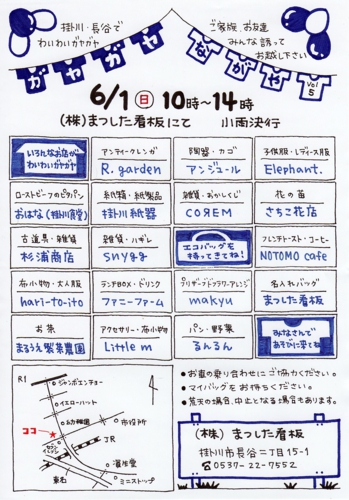 掛川・長谷で
わいわいガヤガヤ
ご家族、お友達
みんな誘って
お越し下さい
ガヤガヤ
ながや
Vol
5
6/1 日 10時〜14時
(株)まつした看板にて 小雨決行
いろんなお店が
わいわいガヤガヤ
アンティークレンガ
R. garden
陶器・カゴ
アンジュール
子供服・レディース服
Elephant.
ローストビーフのピタパン
おはな(掛川食堂)
紙雑貨・紙製品
掛川紙器
雑貨・おかしくじ
COЯEM
花の苗
さちこ花店
古道具・雑貨
杉浦商店
雑貨・ハギレ
snygg
エコバッグを
持ってきてね!
フレンチトースト・コーヒー
NOTOMO cafe
布小物・大人服
hari-to-ito
ランチBOX・ドリンク
ファニーファーム
プリザーブドフラワーアレンジ
makyu
名入れバッグ
まつした看板
お茶
まるうえ製茶農園
アクセサリー・布小物
Little m
パン・野菜
るんるん
みなさんで
あそびに来てね
R1
ジャンボエンチョー
イエローハット
ルカ幼稚園
市役所
ココ
セブンイレブン
JR
資生堂
東名
ミニストップ
●お車の乗り合わせにご協力ください。
●マイバッグをお持ちください。
●荒天の場合、中止となる場合もあります。
(株)まつした看板
掛川市長谷二丁目15-1
☎0537-22-7552